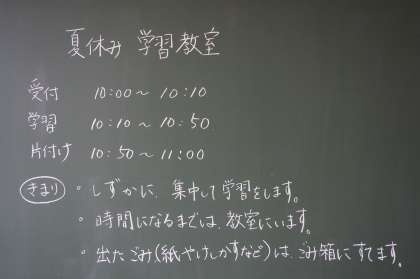 夏休み 学習教室
受付 10:00～10:10
学習 10:10～10:50
片付け 10:50～11:00
きまり ・しずかに、集中して学習をします。
・時間になるまでは、教室にいます。
・出たごみ(紙やけしかすなど)は、ごみ箱にすてます。